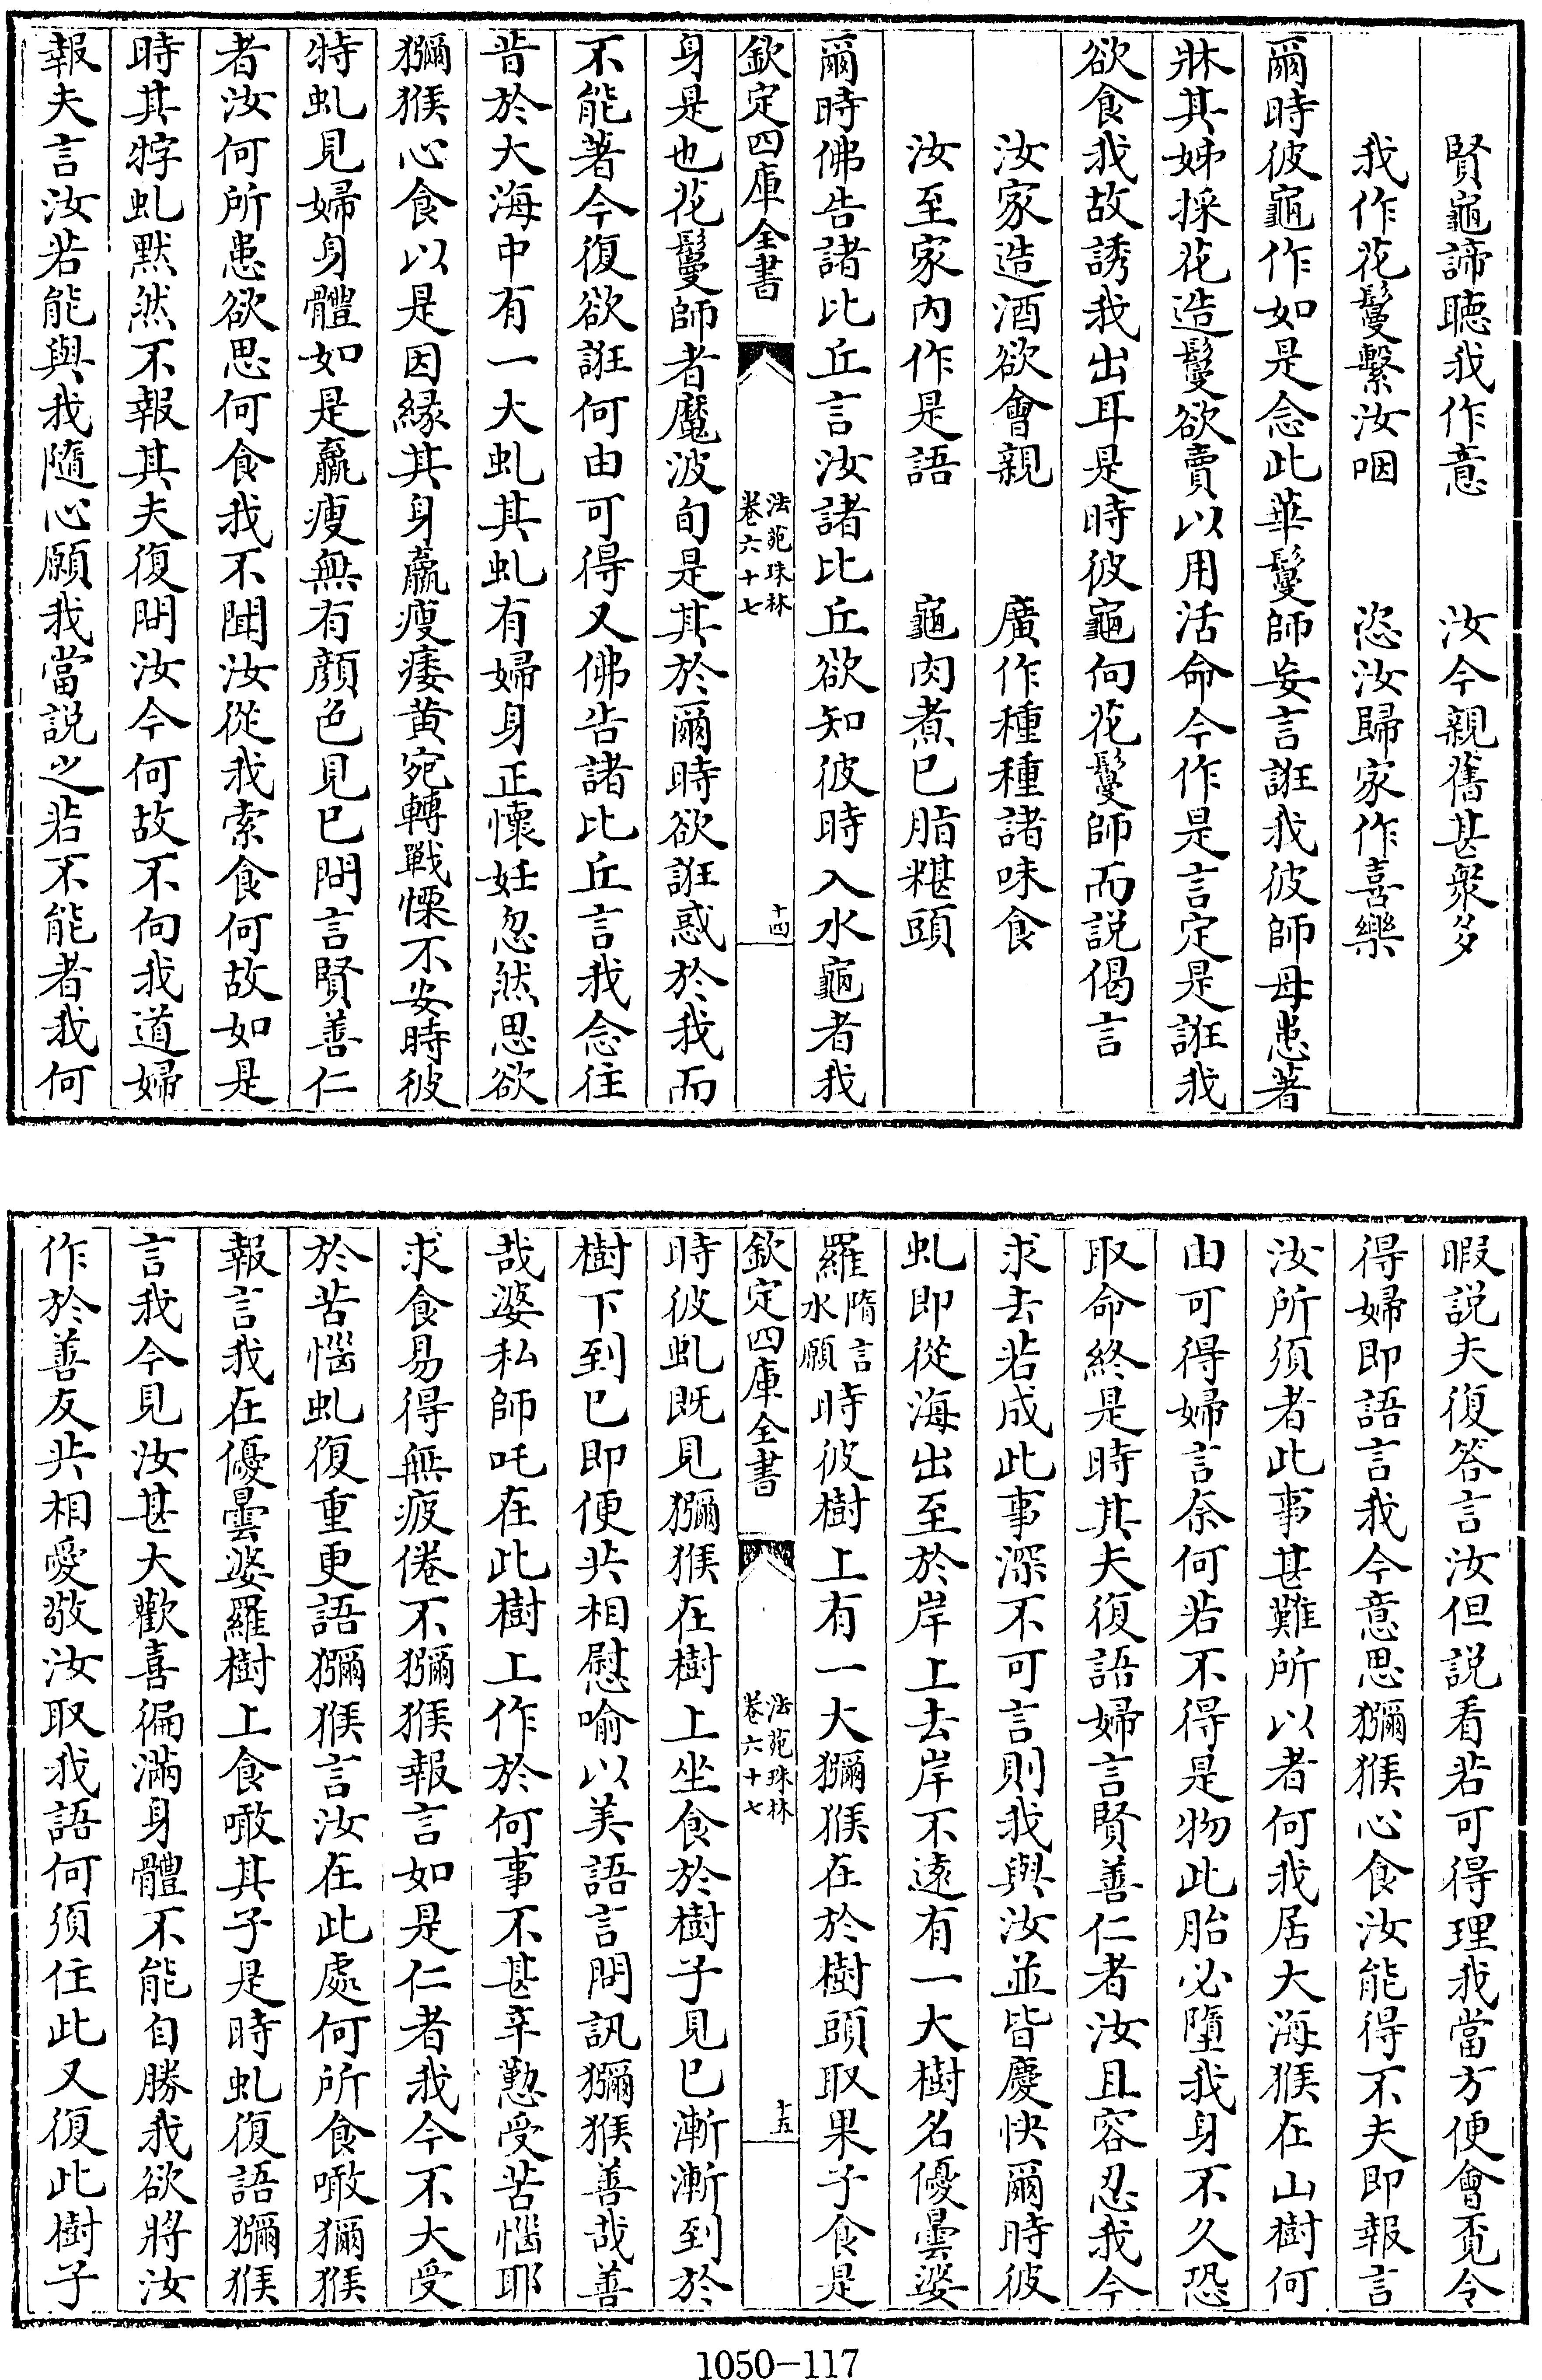 賢龜諦聽我作意　汝今親舊甚衆多
我作花鬘繫汝咽　恣汝歸家作喜樂
爾時彼龜作如是念此華鬘師妄言誑我彼師母患著
牀其姊採花造鬘欲賣以用活命今作是言定是誑我
欲食我故誘我出耳是時彼龜向花鬘師而説偈言
汝家造酒欲會親　廣作種種諸味食
汝至家内作是語　龜肉煮已脂糂頭
爾時佛告諸比丘言汝諸比丘欲知彼時入水龜者我
欽定四庫全書
法苑珠林
卷六十七
十四
身是也花鬘師者魔波旬是其於爾時欲誑惑於我而
不能著今復欲誑何由可得又佛告諸比丘言我念往
昔於大海中有一大虬其虬有婦身正懷妊忽然思欲
獼猴心食以是因緣其身羸瘦痿黄宛轉戰慄不安時彼
特虬見婦身體如是羸瘦無有顔色見已問言賢善仁
者汝何所患欲思何食我不聞汝從我索食何故如是
時其牸虬默然不報其夫復問汝今何故不向我道婦
報夫言汝若能與我隨心願我當説之若不能者我何
暇説夫復答言汝但説看若可得理我當方便會覔令
得婦即語言我今意思獼猴心食汝能得不夫即報言
汝所須者此事甚難所以者何我居大海猴在山樹何
由可得婦言奈何若不得是物此胎必墮我身不久恐
取命終是時其夫復語婦言賢善仁者汝且容忍我今
求去若成此事深不可言則我與汝並皆慶快爾時彼
虬即從海出至於岸上去岸不遠有一大樹名優曇婆
羅隋言水願時彼樹上有一大獼猴在於樹頭取果子食是
欽定四庫全書
法苑珠林
卷六十七
十五
時彼虬既見獼猴在樹上坐食於樹子見已漸漸到於
樹下到已即便共相慰喻以美語言問訊獼猴善哉善
哉婆私師吒在此樹上作於何事不甚辛懃受苦惱耶
求食易得無疲倦不獼猴報言如是仁者我今不大受
於苦惱虬復重更語獼猴言汝在此處何所食噉獼猴
報言我在優曇婆羅樹上食噉其子是時虬復語獼猴
言我今見汝甚大歡喜徧滿身體不能自勝我欲將汝
作於善友共相愛敬汝取我語何須住此又復此樹子
1050-117